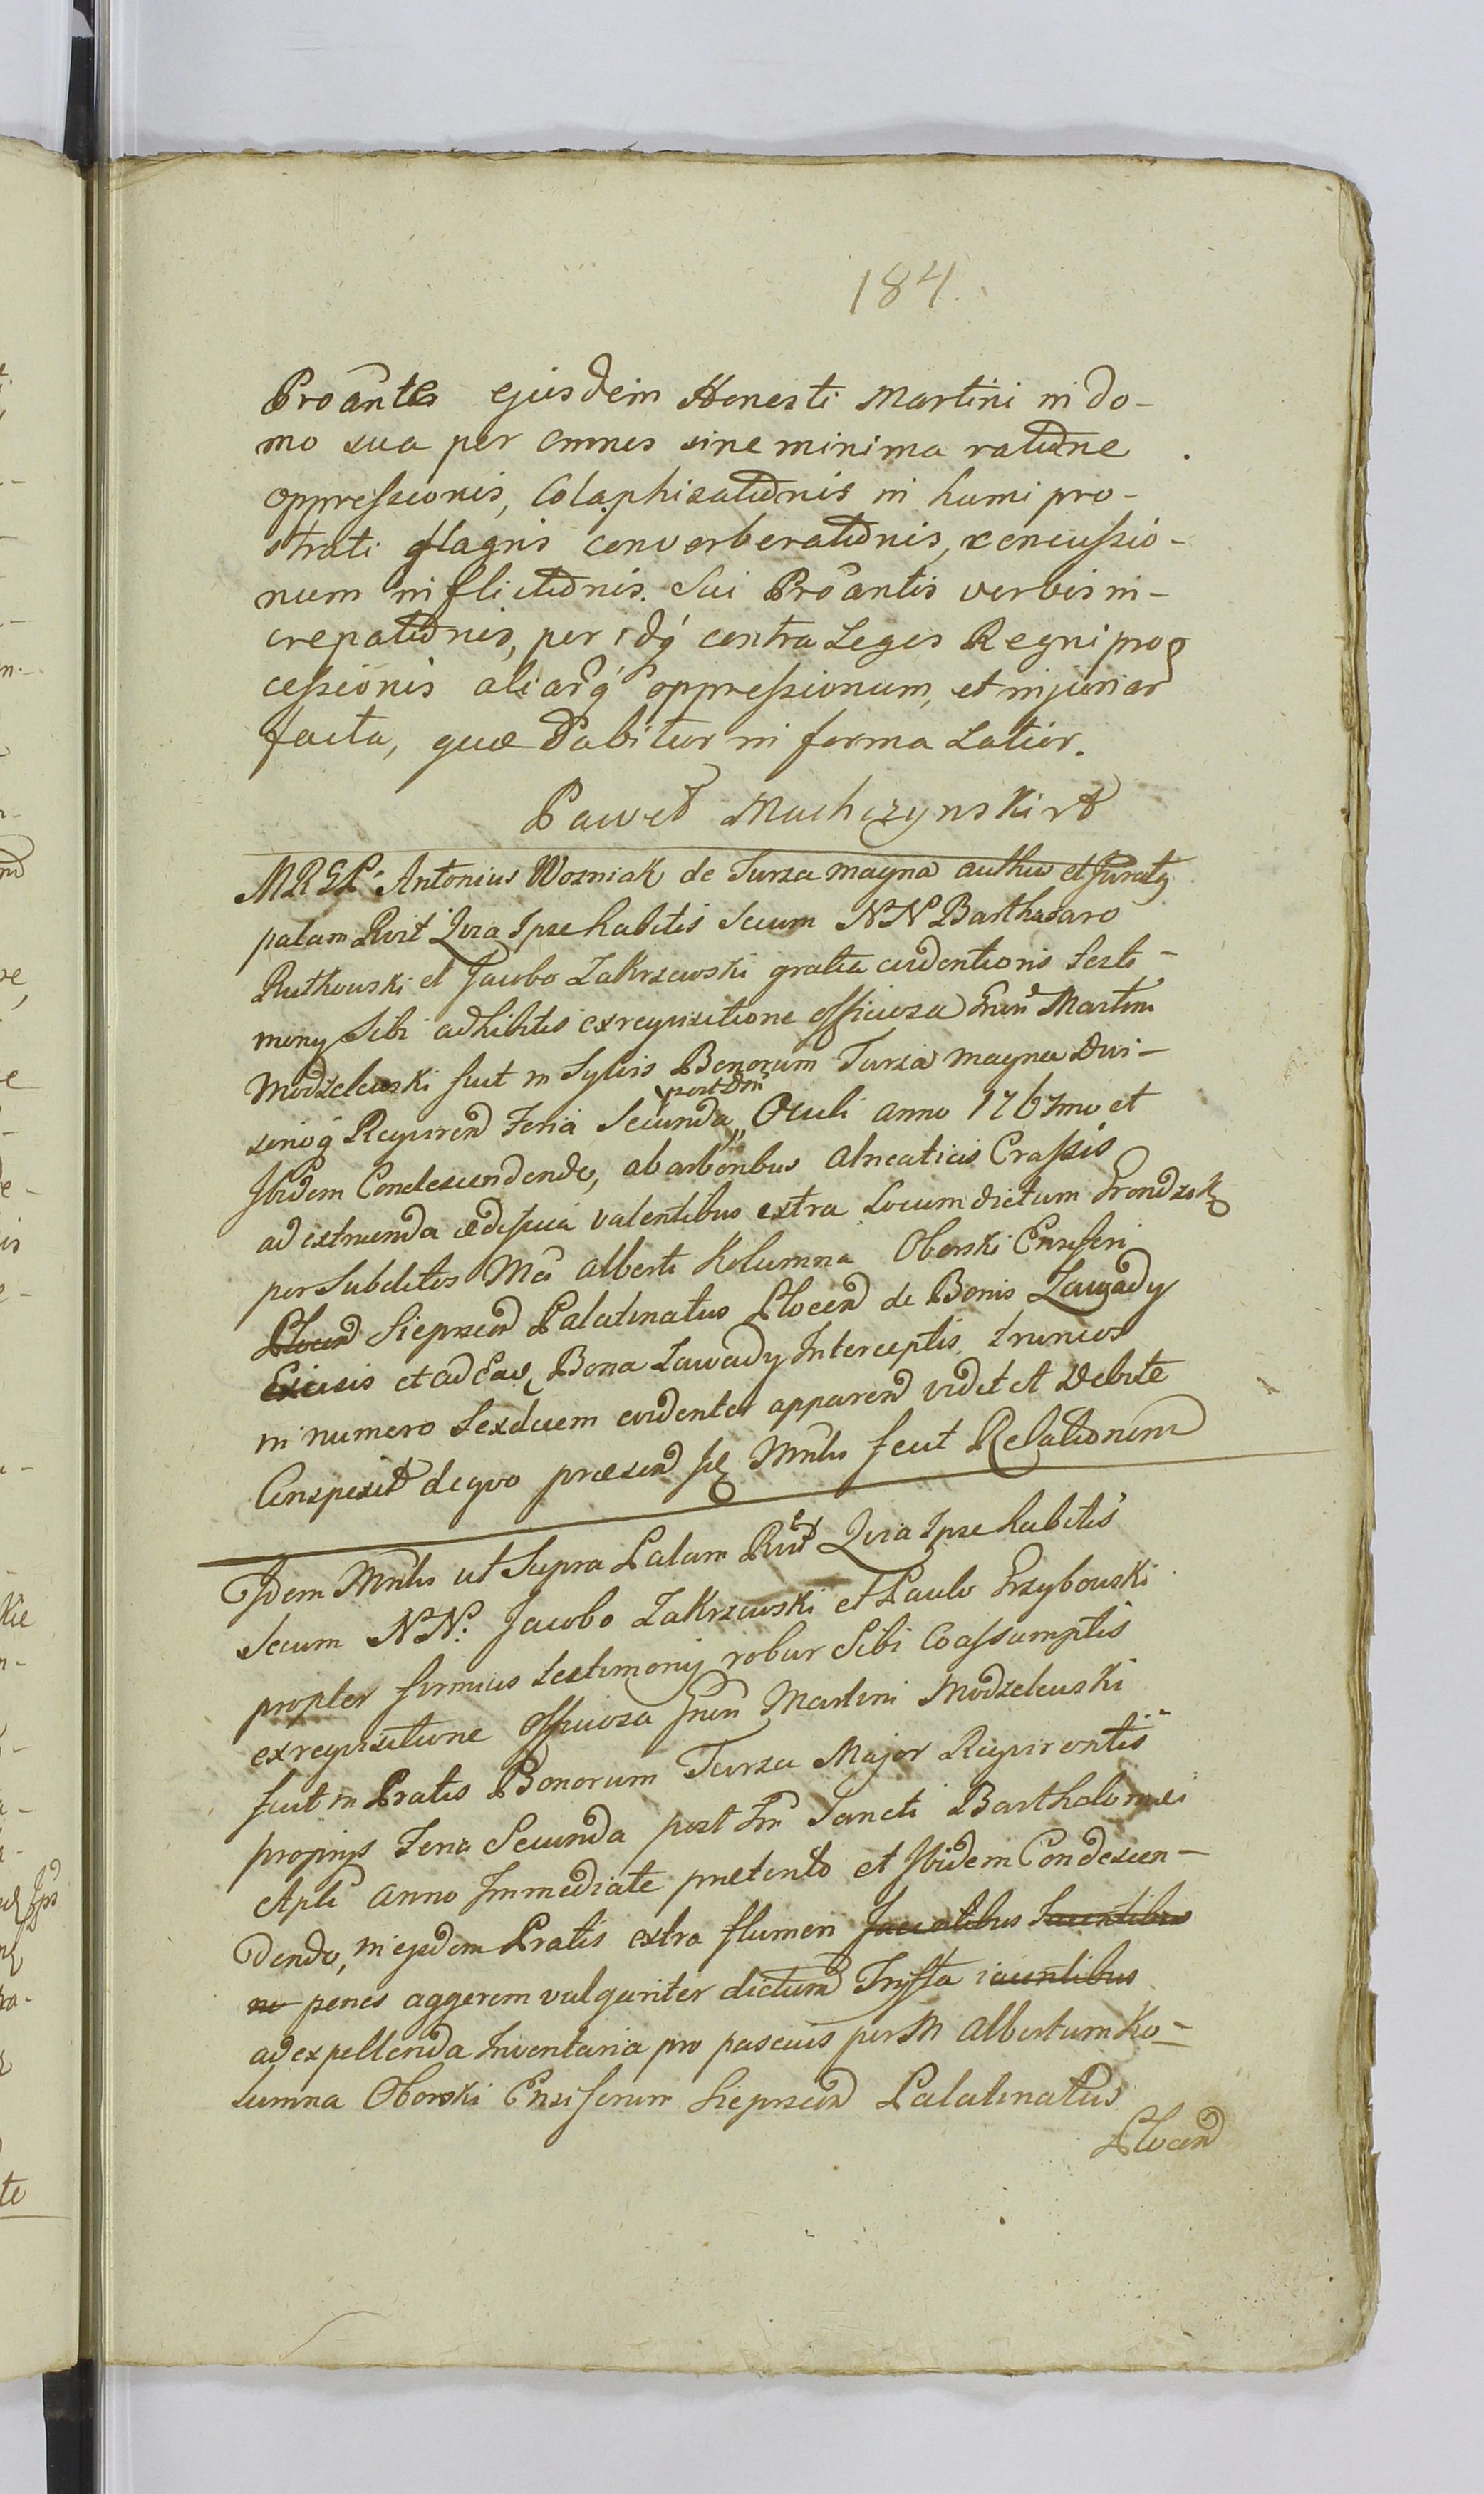 184.
Proantes ejusdem Honesti Martini in do-
mo sua per omnes sine minima rationne
oppressionis, Colaphisationis in humi pro-
strati flagris converberationis, concussio-
num inflictionis. Sui Proantis verbis in-
crepationis, per idq contra Leges Regni pro
cessionis aliarq oppressionum, et injuriar
facta, quæ Dabitur in forma Latior.
Paweł Machczynski
MRGL Antonius Wozniak de Turza magna authus et Juratq
palam Rvit Quia Ipse habitis Secum NN Barthasaro
Rutkowski et Jacobo Zakrzewski gratia evidentioris testi-
mony Sibi adhibitis ex requisitione officiosa Gnri Martini
Modzelewski fuit in Sylvis Bonorum Turza magna Divi-
sinoq Requiren Feria Secunda post Dm Oculi anno 1767mo et
Ibidem Condescendendo, ab arboribus alneaticis Crassis
ad extruenda ædificia valentibus extra Locum dictum Grondzik
per Subditos Mci Alberti Kolumna Oborski Ensiferi
Plocen Sieprcen Palatinatus Plocen de Bonis Zawady
Excisis et ad Eaq Bona Zawady Interceptis, truncos
in numero Sexdecem evidenter apparen vidit et Debite
Conspexit de quo præsen Mnlis fecit Relationem
Idem Mnlis ut Supra Palam Rvit Quia Ipse habitis
Secum NN. Jacobo Zakrzewski et Paulo Grzybowski
propter firmius testimony robur Sibi Coassumptis
ex requisitione officiosa Gnri Martini Modzelewski
fuit in Pratis Bonorum Turza Major Requirentis
propriys Feria Secunda post Fm Sancti Bartholomei
Apli anno Immediate præterito et Ibidem Condescen-
dendo, in ejsdem Pratis extra flumen Jacentibus Jacentibus
in penes aggerem vulgariter dictum Trysta iacentibus
ad expellenda Inventaria pro pascuis per M Albertum Ko-
lumna Oborski Ensiferum Sieprcen Palatinatus
Plocen